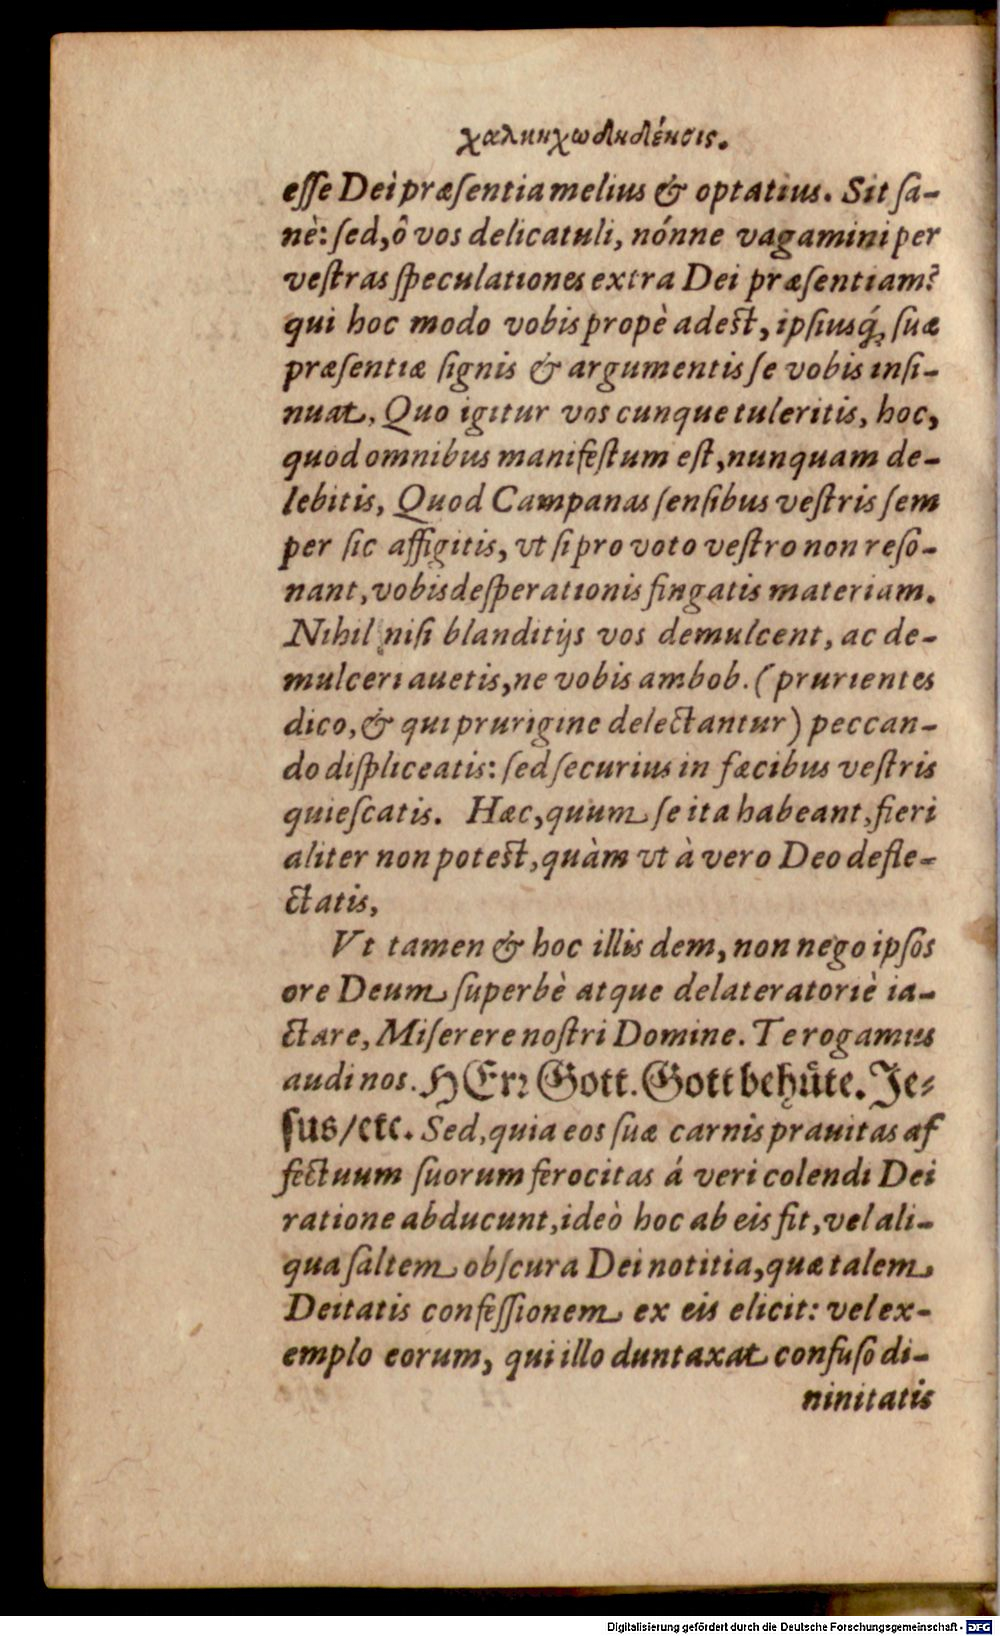 χαλκηχωδηδένσις.
eſſe Dei præſentia melius & optatius. Sit ſa-
nè: ſed, ô vos delicatuli, nónne vagamini per
veſtras ſpeculationes extra Dei præſentiam?
qui hoc modo vobis propè adeſt, ipſiusq́, ſuæ
præſentiæ ſignis & argumentis ſe vobis inſi-
nuat, Quo igitur vos cunque tuleritis, hoc,
quod omnibus manifeſtum eſt, nunquam de-
lebitis, Quod Campanas ſenſibus veſtris ſem
per ſic affigitis, vt ſi pro voto veſtro non reſo-
nant, vobis deſperationis fingatis materiam.
Nihil niſi blanditijs vos demulcent, ac de-
mulceri auetis, ne vobis ambob. (prurientes
dico, & qui prurigine delectantur) peccan-
do diſpliceatis: ſed ſecurius in fæcibus veſtris
quieſcatis. Hæc, quum ſe ita habeant, fieri
aliter non poteſt, quàm vt à vero Deo defle-
ctatis,
Vt tamen & hoc illis dem, non nego ipſos
ore Deum ſuperbè atque delateratoriè ia-
ctare, Miſerere noſtri Domine. Te rogamus
audi nos. HErr Gott. Gott behüte. Je-
ſus/etc. Sed, quia eos ſuæ carnis prauitas af
fectuum ſuorum ferocitas á veri colendi Dei
ratione abducunt, ideò hoc ab eis fit, vel ali-
qua ſaltem obſcura Dei notitia, quæ talem
Deitatis confeſſionem ex eis elicit: vel ex-
emplo eorum, qui illo duntaxat confuſo di-
ninitatis
Digitalisierung gefördert durch die Deutsche Forschungsgemeinschaft - DFG